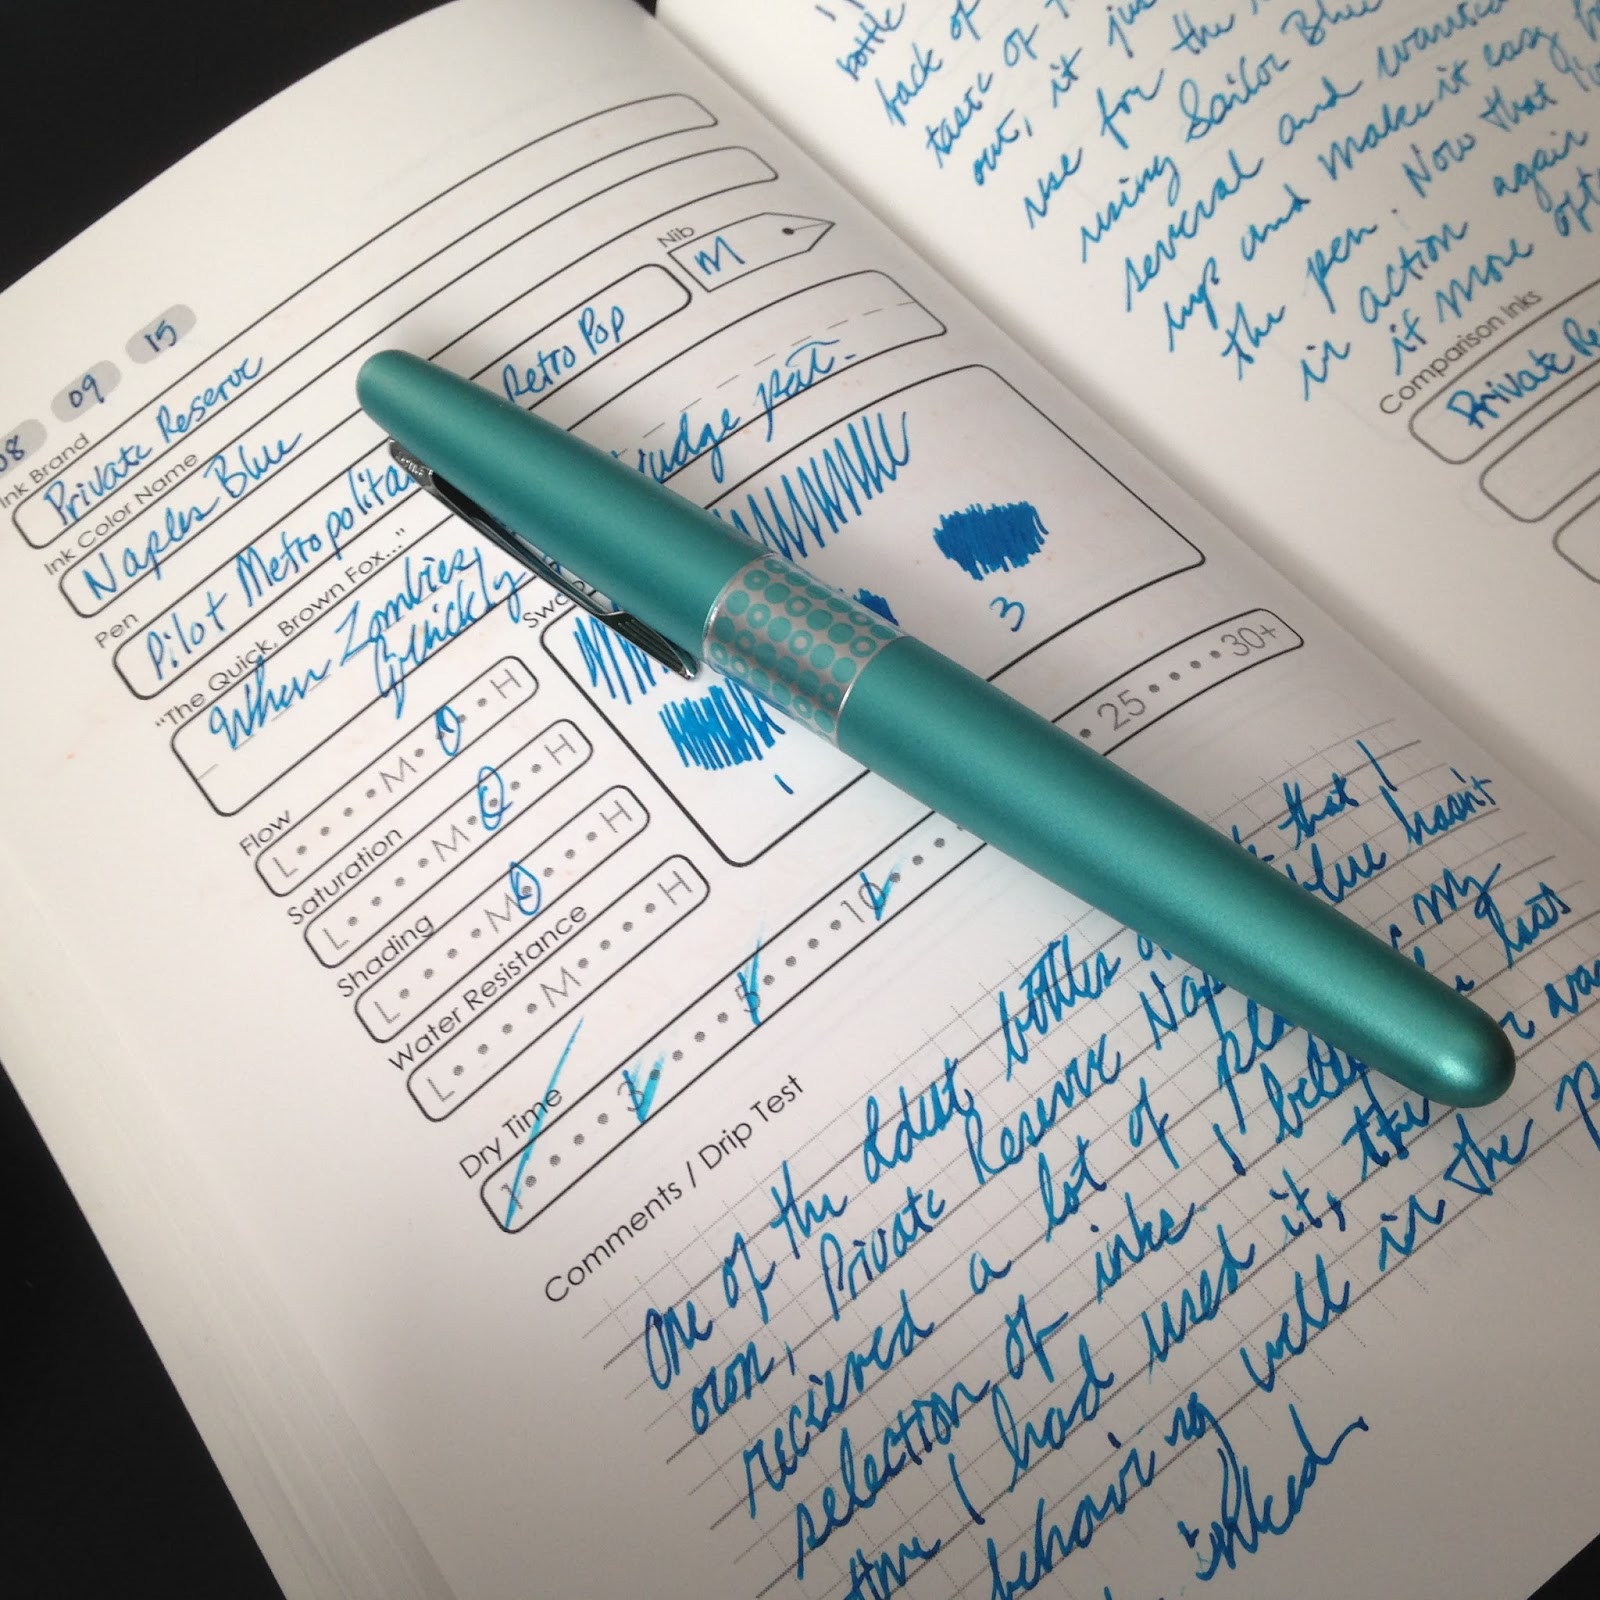 08 09 15
Ink Brand
Private Reserve
Ink Color Name
Naples Blue
Pen
Pilot Metropolitan Retro Pop
Nib
M
"The Quick, Brown Fox..."
When Zombies judge pat-
quickly
Flow
L M H
Saturation
L M H
Shading
L M H
Water Resistance
L M H
1
3
Dry Time
1 3 5 10 25 30+
Comments / Drip Test
One of the oldest bottles that I
own, Private Reserve Blue hasn't
recieved a lot of my
selection of inks. I last
time I had used it, the
behaving well in the
inked.
bottle
back of
taste of
out, it just
use for the
using Sailor Blue
several and wanted
up and make it easy
the pen. Now that
in action again
it more
Comparison Inks
Private